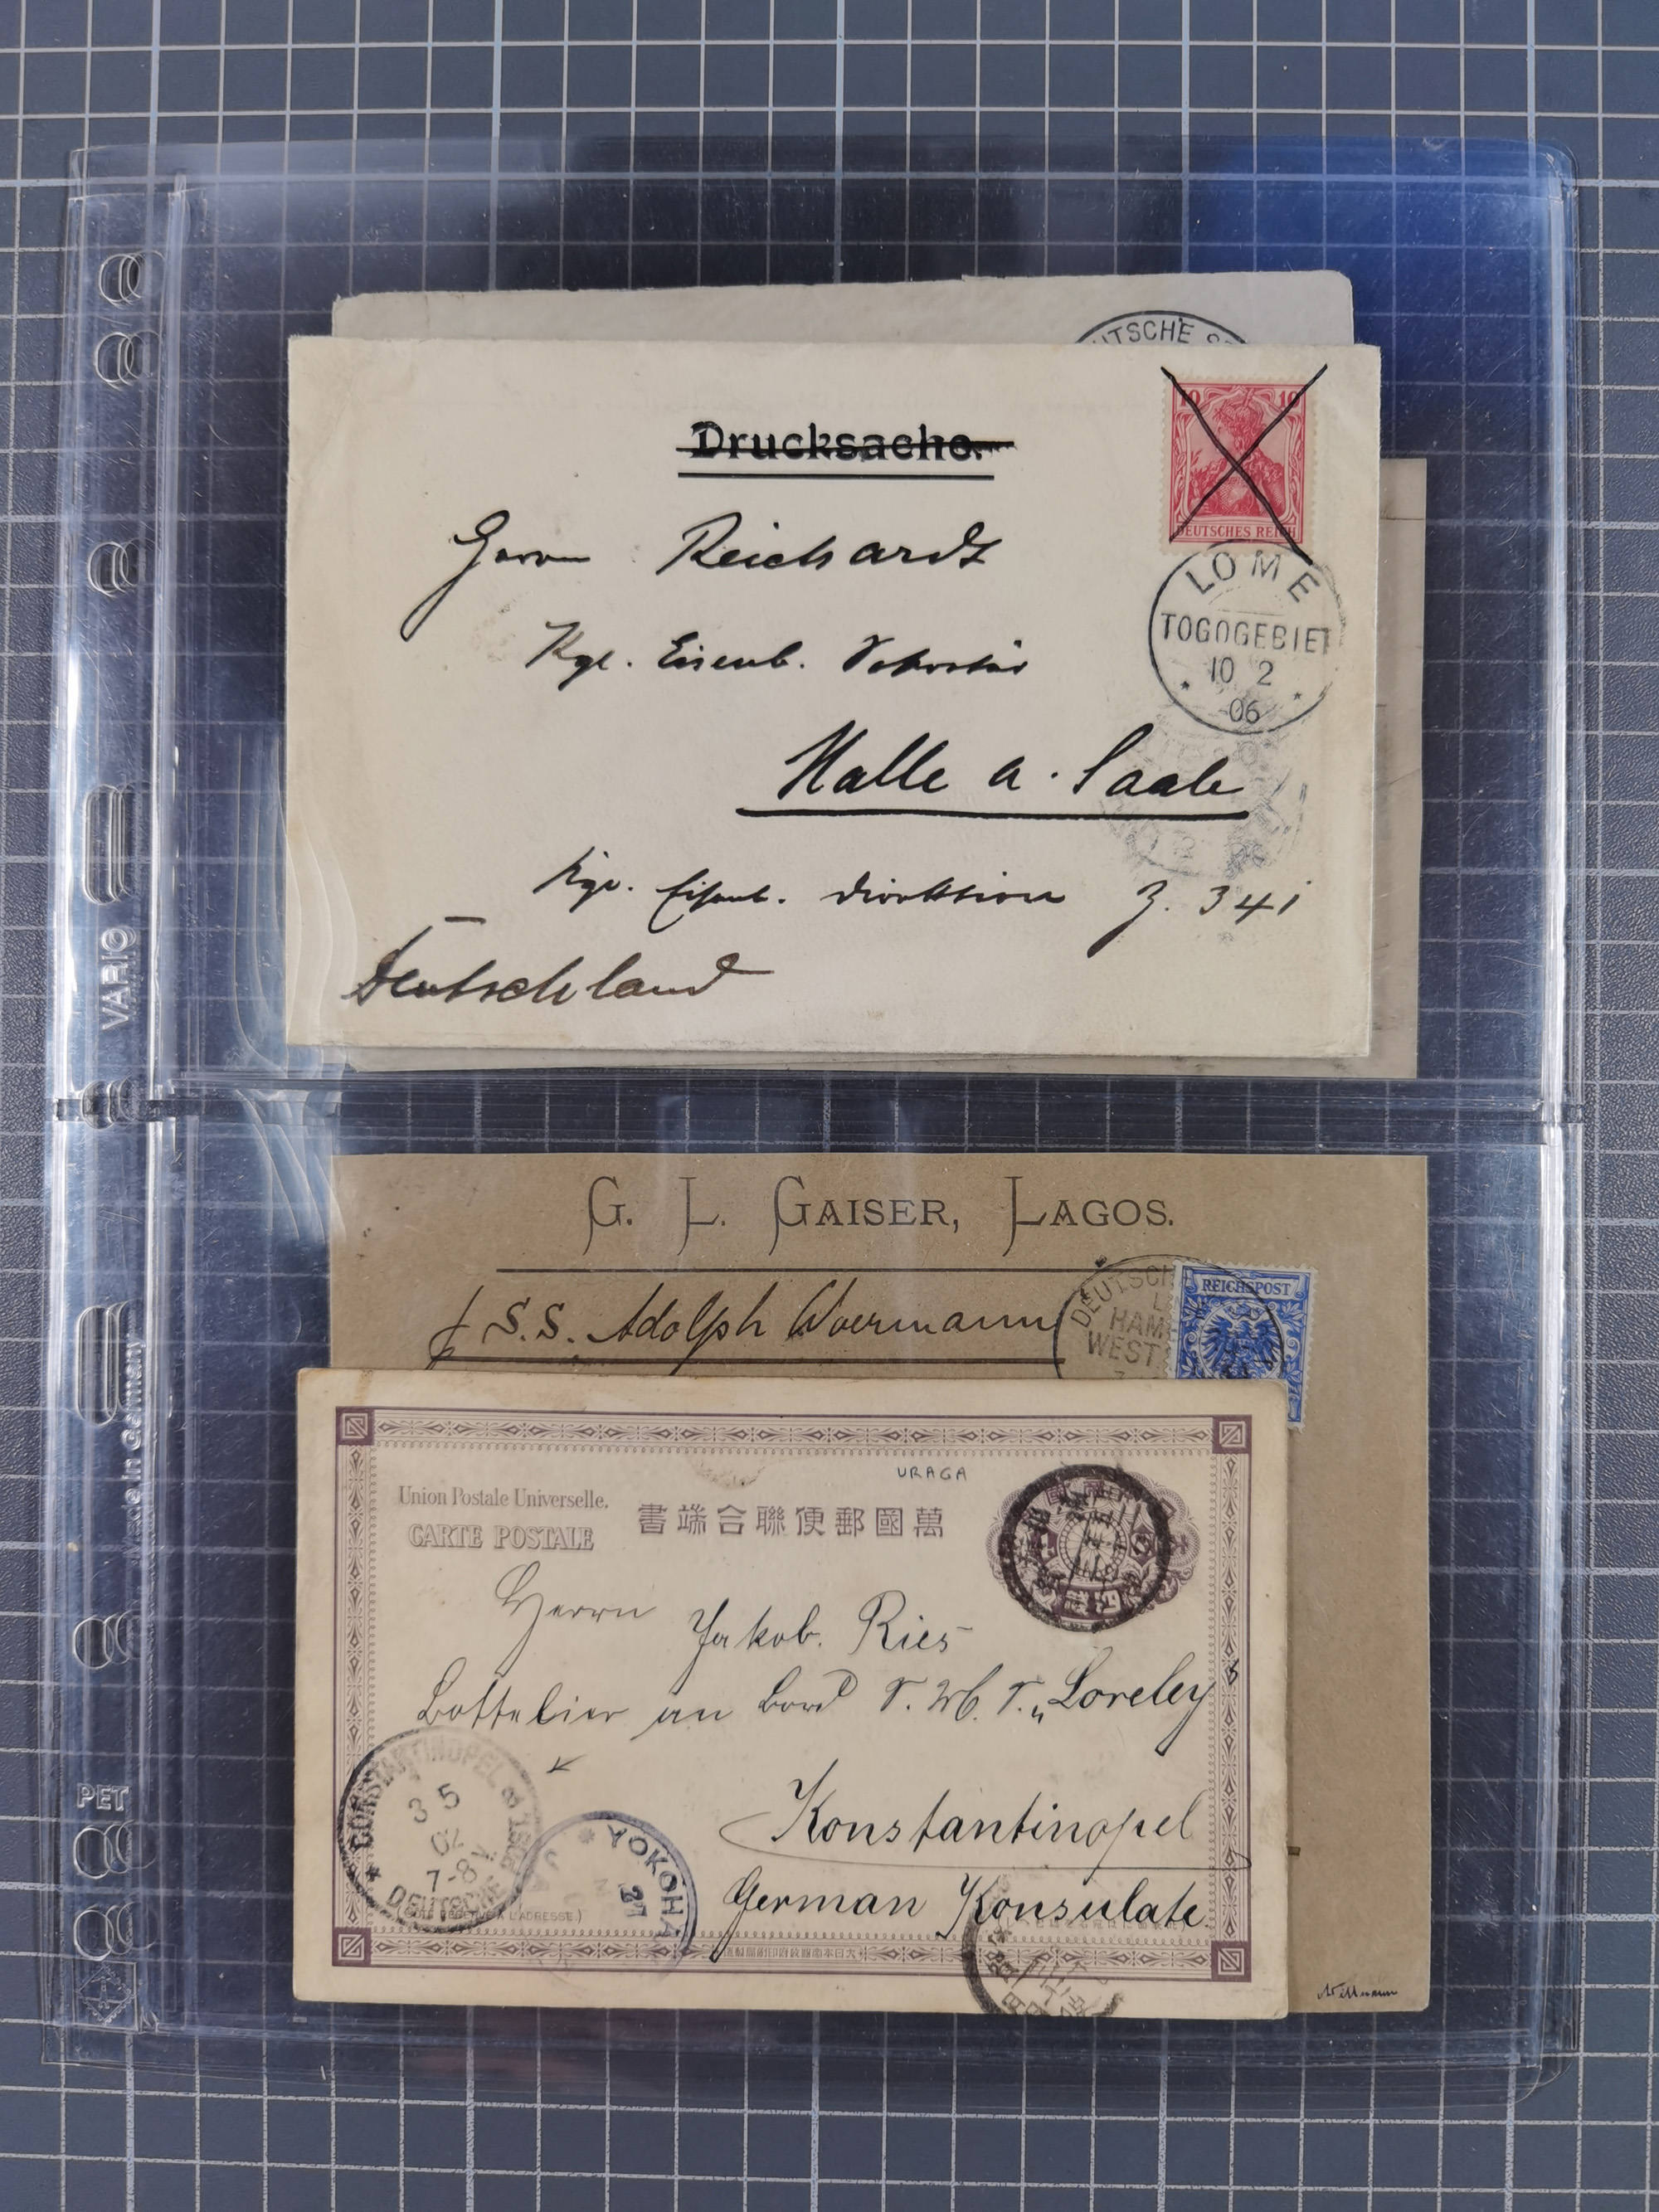 UTSCHE
Drucksache.
10 10
DEUTSCHES REICH
Herrn Reichardt
LOME
TOGOGEBIET
10 2
06
Kgl. Eisenb. Sekretär
Halle a. Saale
Kgl. Eisenb. Direktion Z. 341
Deutschland
VARIO
Made in Germany
PET
G. L. GAISER, LAGOS.
p S.S. Adolph Woermann
DEUTSCH
HAM
WEST
REICHSPOST
URAGA
Union Postale Universelle.
CARTE POSTALE
書端合聯便郵國萬
Herrn Jakob. Ries
Bottelier an Bord S. M. S. „Loreley"
Konstantinopel
German Konsulate
CONSTANTINOPEL
3 5
02
7-8
DEUTSCHE POST
YOKOHA
27
A L'ADRESSE.)